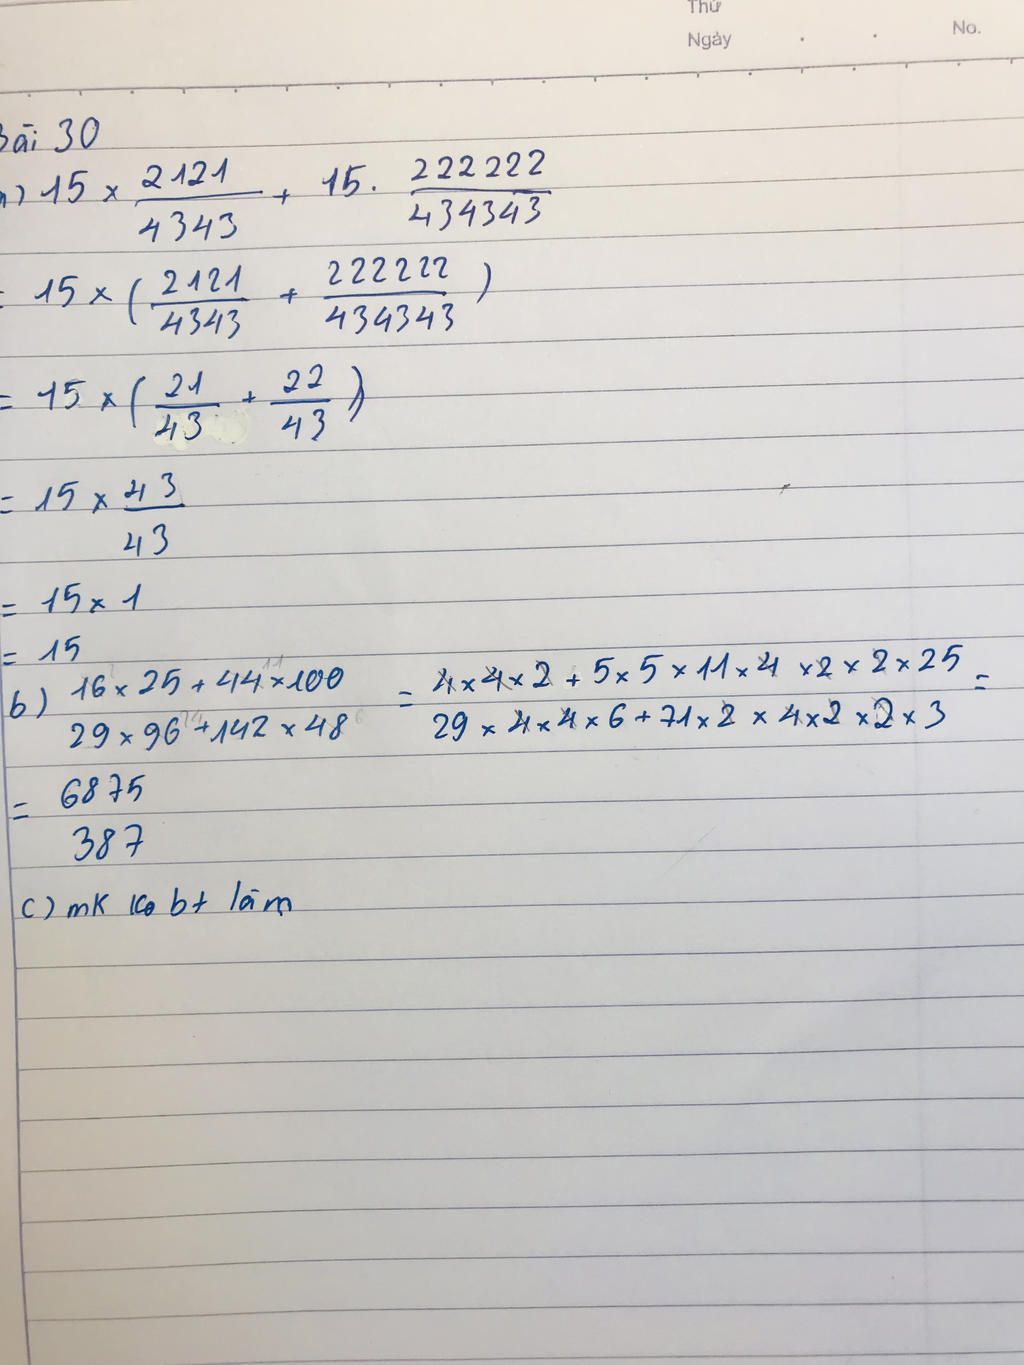 Thứ
Ngày . . No.
Bài 30
a) 15 × 2121/4343 + 15. 222222/434343
= 15 × (2121/4343 + 222222/434343)
= 15 × (21/43 + 22/43)
= 15 × 43/43
= 15 × 1
= 15
b) 16 × 25 + 44 × 100 / 29 × 96 + 142 × 48 = 4 × 4 × 2 + 5 × 5 × 11 × 4 × 2 × 2 × 25 / 29 × 4 × 4 × 6 + 71 × 2 × 4 × 2 × 2 × 3 =
= 6875/387
c) mk ko bt làm